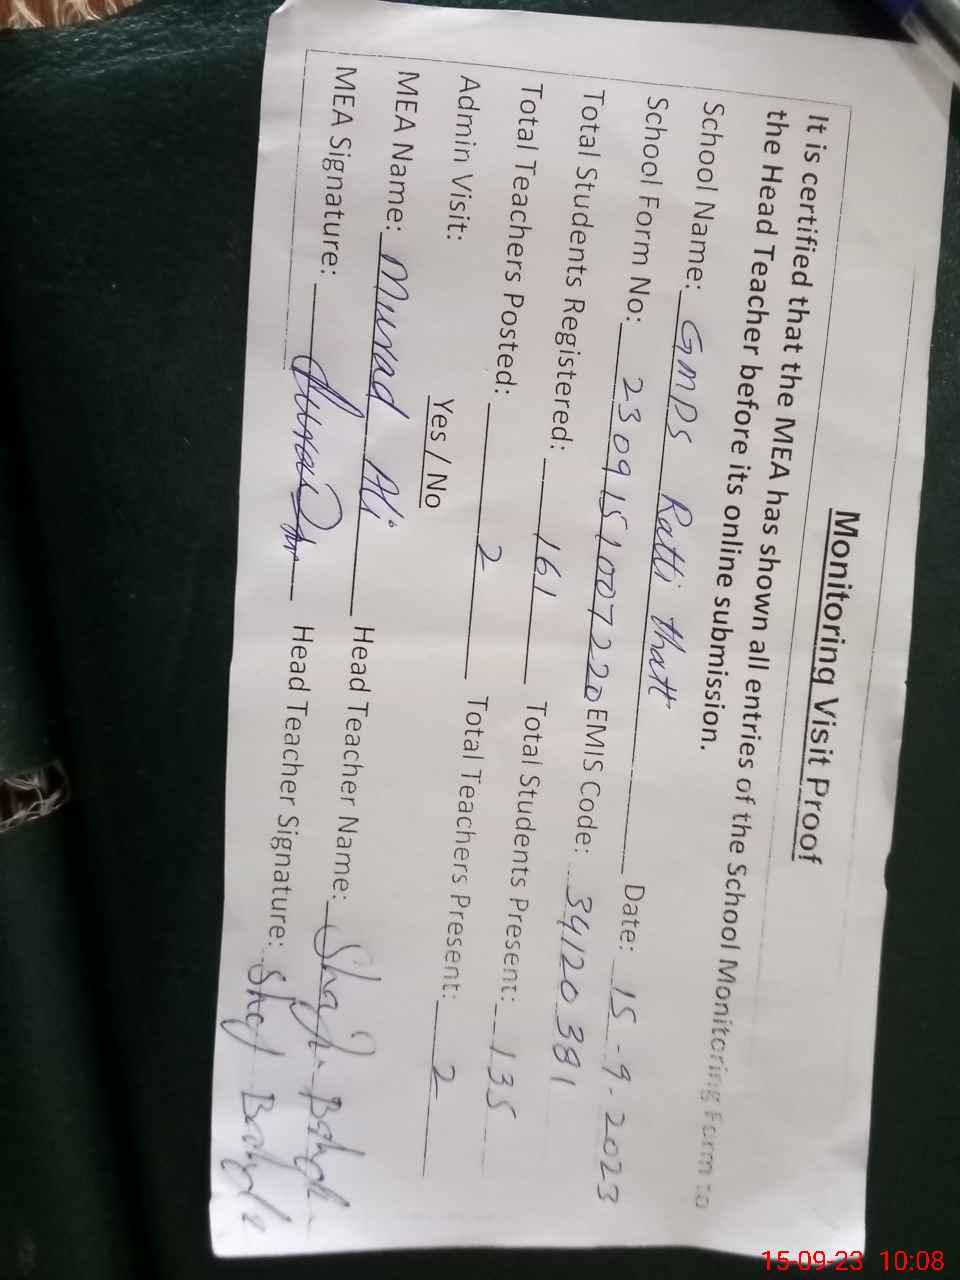 Monitoring Visit Proof
It is certified that the MEA has shown all entries of the School Monitoring Form to
the Head Teacher before its online submission.
School Name: GMPS Ratti thatt Date: 15-9-2023
School Form No: 2309151007220 EMIS Code: 34120381
Total Students Registered: 161 Total Students Present: 135
Total Teachers Posted: 2 Total Teachers Present: 2
Admin Visit: Yes / No
MEA Name: Murad Ali Head Teacher Name:
MEA Signature: Head Teacher Signature:
15-09-23 10:08